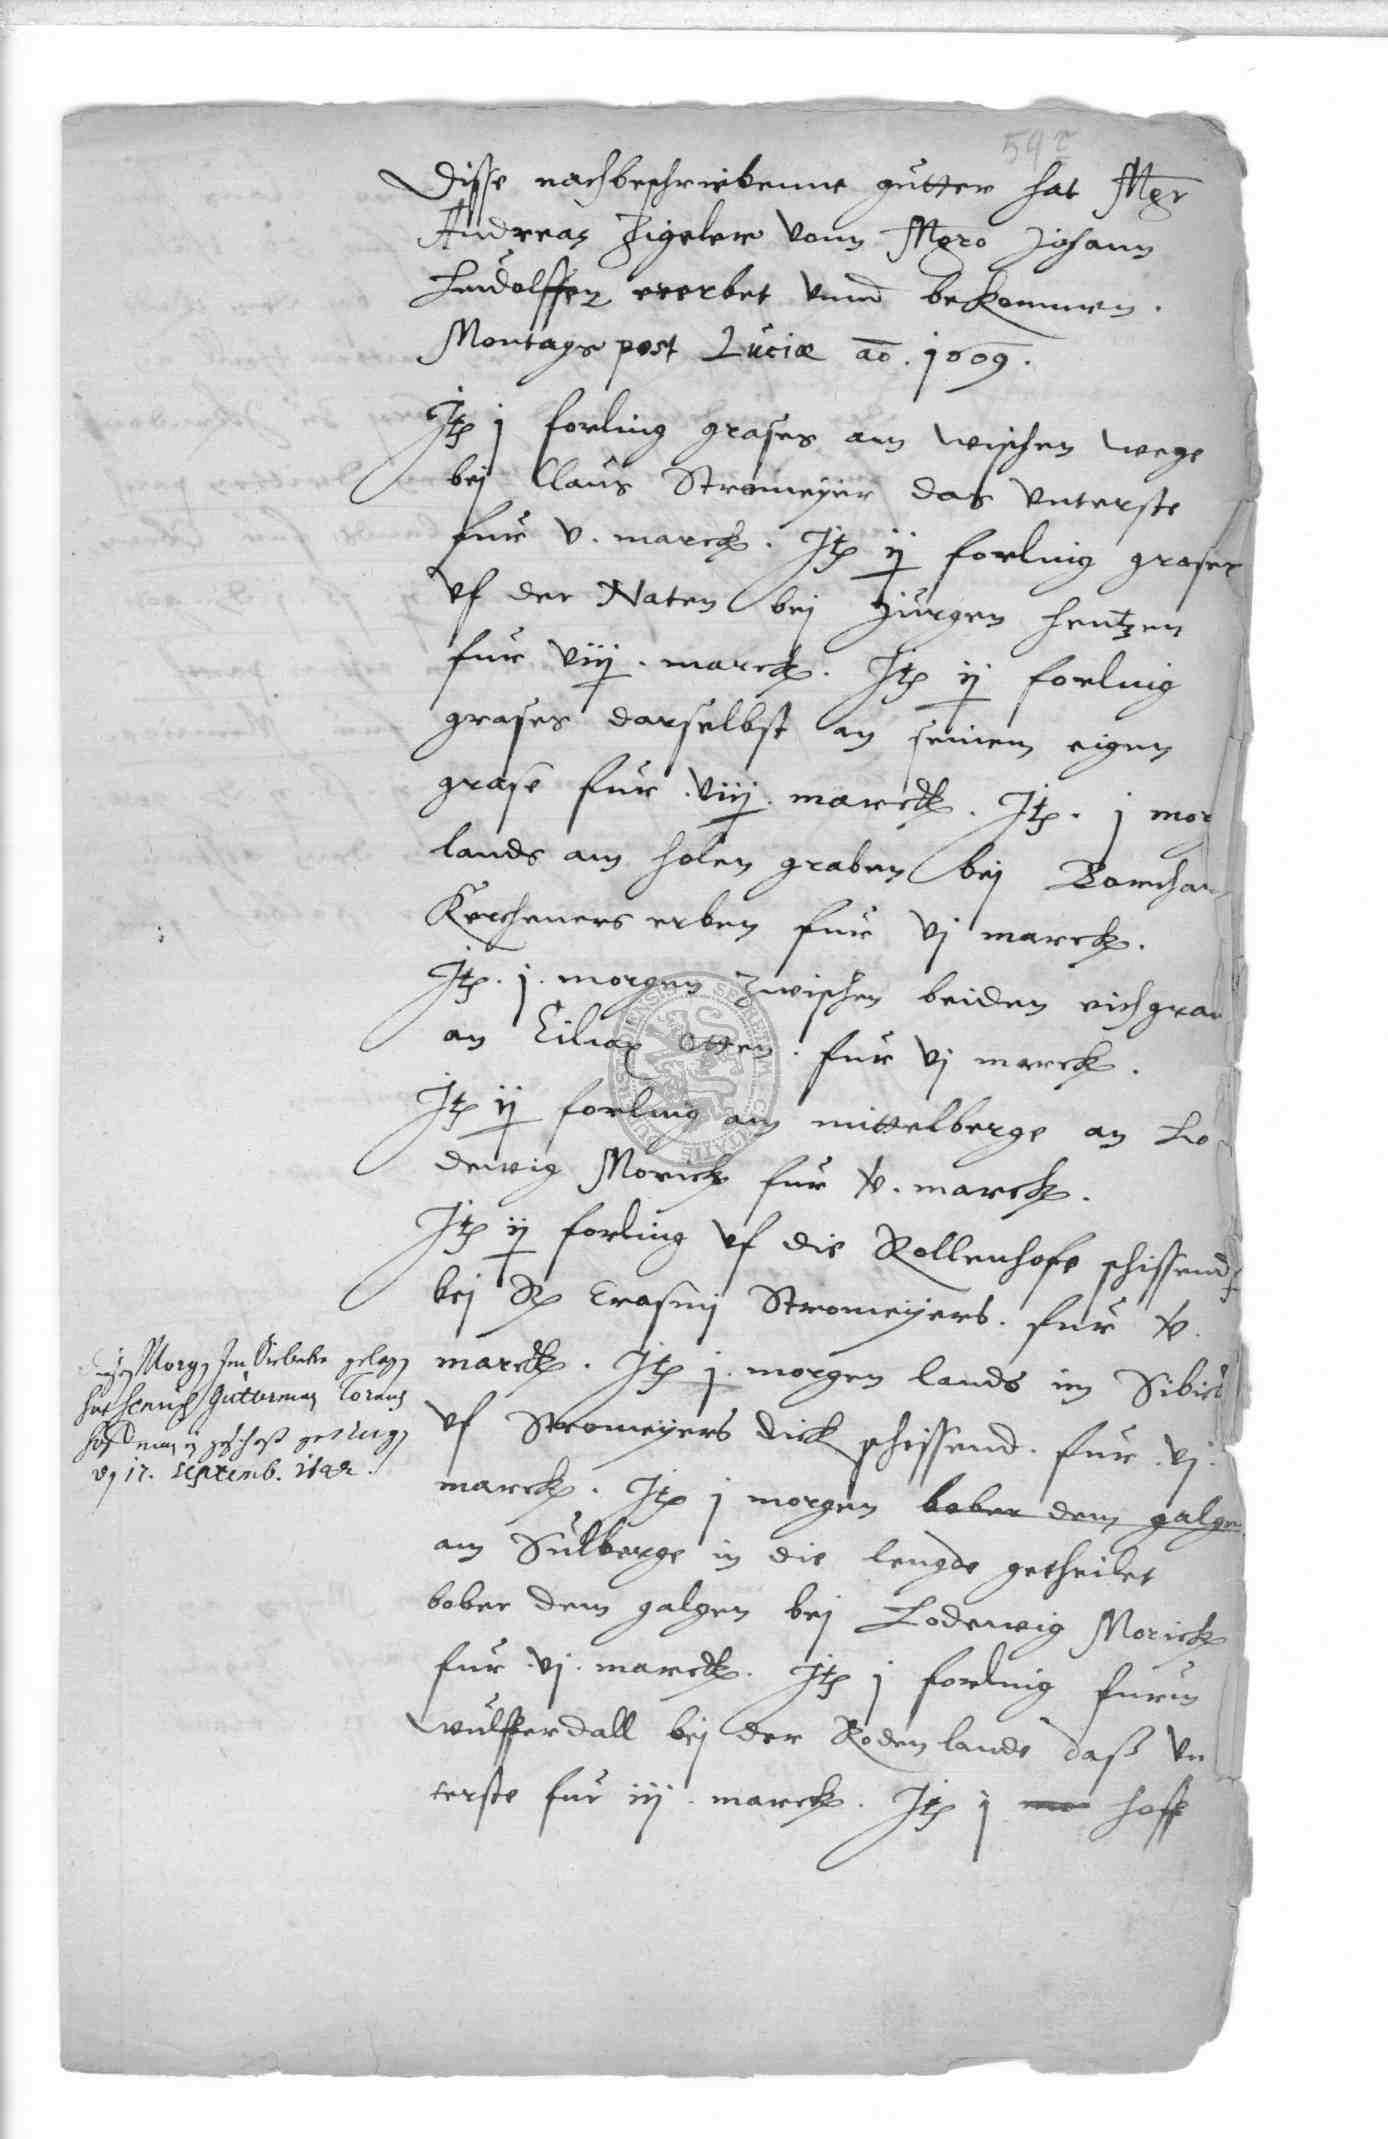 59r
Disse nachbeschriebenne gütter hat Mgr
Andreas Zigeler vonn Mgro Johann
Ludolffen ererbet vnnd bekommen.
Montags post Luciæ ao. 1609.
Itp j forling grases am wischen wege
bej Claus Stromeyer das vnterste
für v. marck. Itp ij forling grases
vf der Naten bej Jürgen Hentzen
für viij. marck. Itp ij forling
grases darselbst an seinem eigen
grase für viij. marck. Itp. j mor
lands am holen graben bej
Kercheners erben für vj marck.
Itp. j. morgen zwischen beiden
an Otten. für vj marck.
Itp ij forling am mittelberge an Lo
dewig Morick für v. marck.
Itp ij forling vf die Rollenhofe schissend
bej Erasmj Stromeyers. für v.
marck. Itp j. morgen lands im
vf Stromeyers dick schissend. für vj.
marck. Itp j morgen bober dem galgen
am Sülberge in die lengde getheilet
bober dem galgen bej Lodewig Morick
für vj. marck. Itp j forling fürm
Wulfferdall bej der Roden lande daß vn
terste für iij. marck. Itp j hoff
Morg Im gelegen
hat Henrich
17. Septemb.